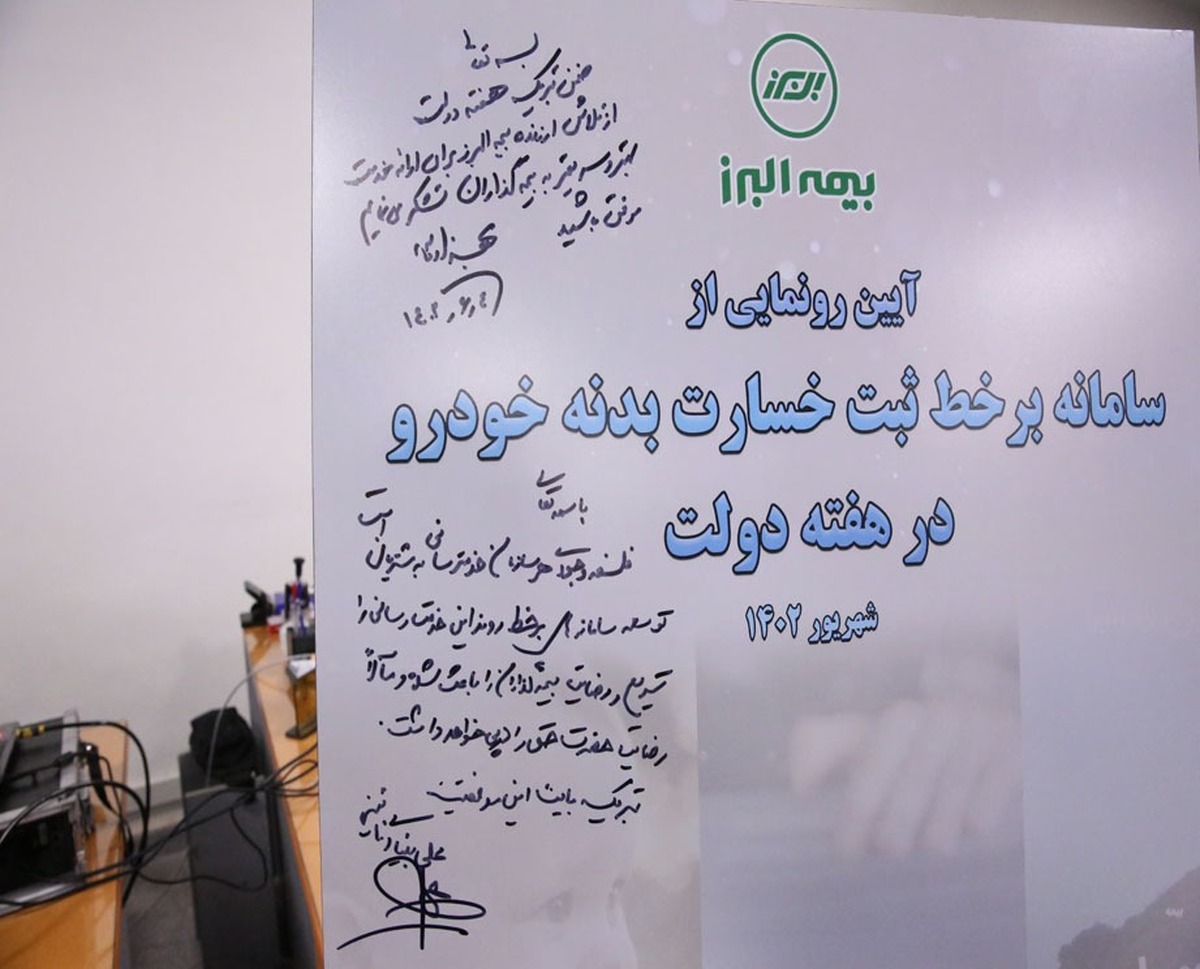 البرز
بیمه البرز
آیین رونمایی از
سامانه برخط ثبت خسارت بدنه خودرو
در هفته دولت
شهریور ۱۴۰۲
بسمه تعالی
ضمن تبریک هفته دولت
از تلاش ارزنده بیمه البرز برای ارائه خدمت
بهتر و سریعتر به بیمه گذاران تشکر می نمایم
موفق باشید
باسمه تعالی
فلسفه وجودی هر سازمان خدمت رسانی به مشتریان است
توسعه سامانه های برخط روند این خدمت رسانی را
تسریع و رضایت بیمه گذاران را باعث شده و مآلاً
رضایت حضرت حق را در پی خواهد داشت.
تبریک بابت این موفقیت